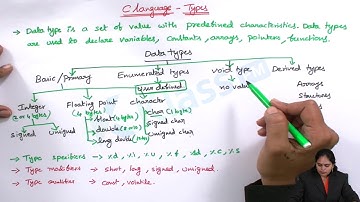 C language - Types
→ Data type is a set of value with predefined characteristics. Data types
are used to declare variables, constants, arrays, pointers, functions.
Data types
Basic/Primary Enumerated types void type Derived types
user defined no value Arrays
Integer Floating point character Structures
(2 or 4 bytes) float (4 bytes) char (1 byte)
signed unsigned double (8 signed char
long double unsigned char
→ Type specifiers → %d, %i, %u, %f, %c, %s
→ Type modifiers → short, long, signed, unsigned
→ Type qualifiers → const, volatile.